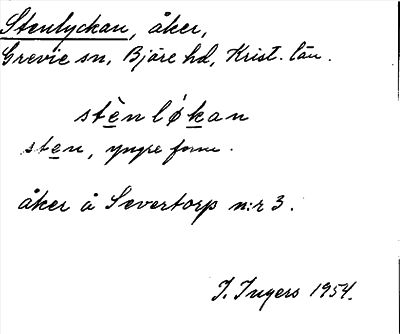 Stenlyckan, åker,
Grevie sn, Bjäre hd, Krist. län.
stènløkan
sten, yngre form.
åker å Severtorp n:r 3.
I. Ingers 1954.